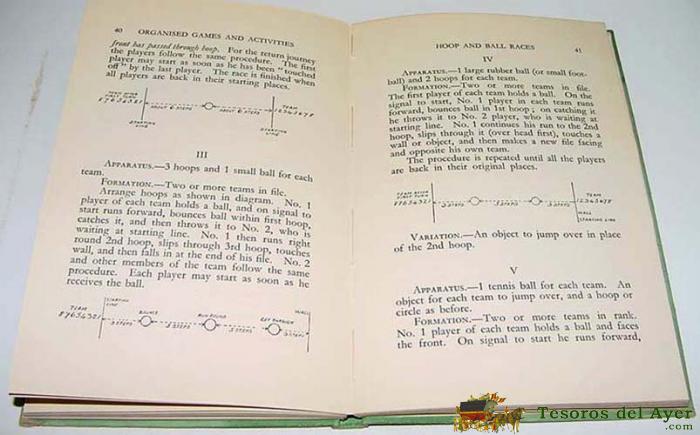 40 ORGANISED GAMES AND ACTIVITIES
front has passed through hoop. For the return journey
the players follow the same procedure. The first
player may start as soon as he has been "touched
off" by the last player. The race is finished when
all players are back in their starting places.
ABOUT 6 STEPS ABOUT 6 STEPS
TEAM
87654321 12345678
STARTING
LINE
STARTING
LINE
III
APPARATUS.—3 hoops and 1 small ball for each
team.
FORMATION.—Two or more teams in file.
Arrange hoops as shown in diagram. No. 1
player of each team holds a ball, and on signal to
start runs forward, bounces ball within first hoop,
catches it, and then throws it to No. 2, who is
waiting at starting line. No. 1 then runs right
round 2nd hoop, slips through 3rd hoop, touches
wall, and then falls in at the end of his file. No. 2
and other members of the team follow the same
procedure. Each player may start as soon as he
receives the ball.
TEAM
87654321
STARTING
LINE
BOUNCE RUN ROUND GET THROUGH WALL
3 STEPS 3 STEPS 3 STEPS 3 STEPS
HOOP AND BALL RACES 41
IV
APPARATUS.—1 large rubber ball (or small foot-
ball) and 2 hoops for each team.
FORMATION.—Two or more teams in file.
The first player of each team holds a ball. On the
signal to start, No. 1 player in each team runs
forward, bounces ball in 1st hoop; on catching it
he throws it to No. 2 player, who is waiting at
starting line. No. 1 continues his run to the 2nd
hoop, slips through it (over head first), touches a
wall or object, and then makes a new file facing
and opposite his own team.
The procedure is repeated until all the players
are back in their original places.
TEAM WHEN
FIRST TURN
87654321
3 STEPS 3 STEPS 3 STEPS
TEAM
12345678
WALL
STARTING LINE
VARIATION.—An object to jump over in place
of the 2nd hoop.
V
APPARATUS.—1 tennis ball for each team. An
object for each team to jump over, and a hoop or
circle as before.
FORMATION.—Two or more teams in rank.
No. 1 player of each team holds a ball and faces
the front. On signal to start he runs forward,
Tesoros del Ayer
.com